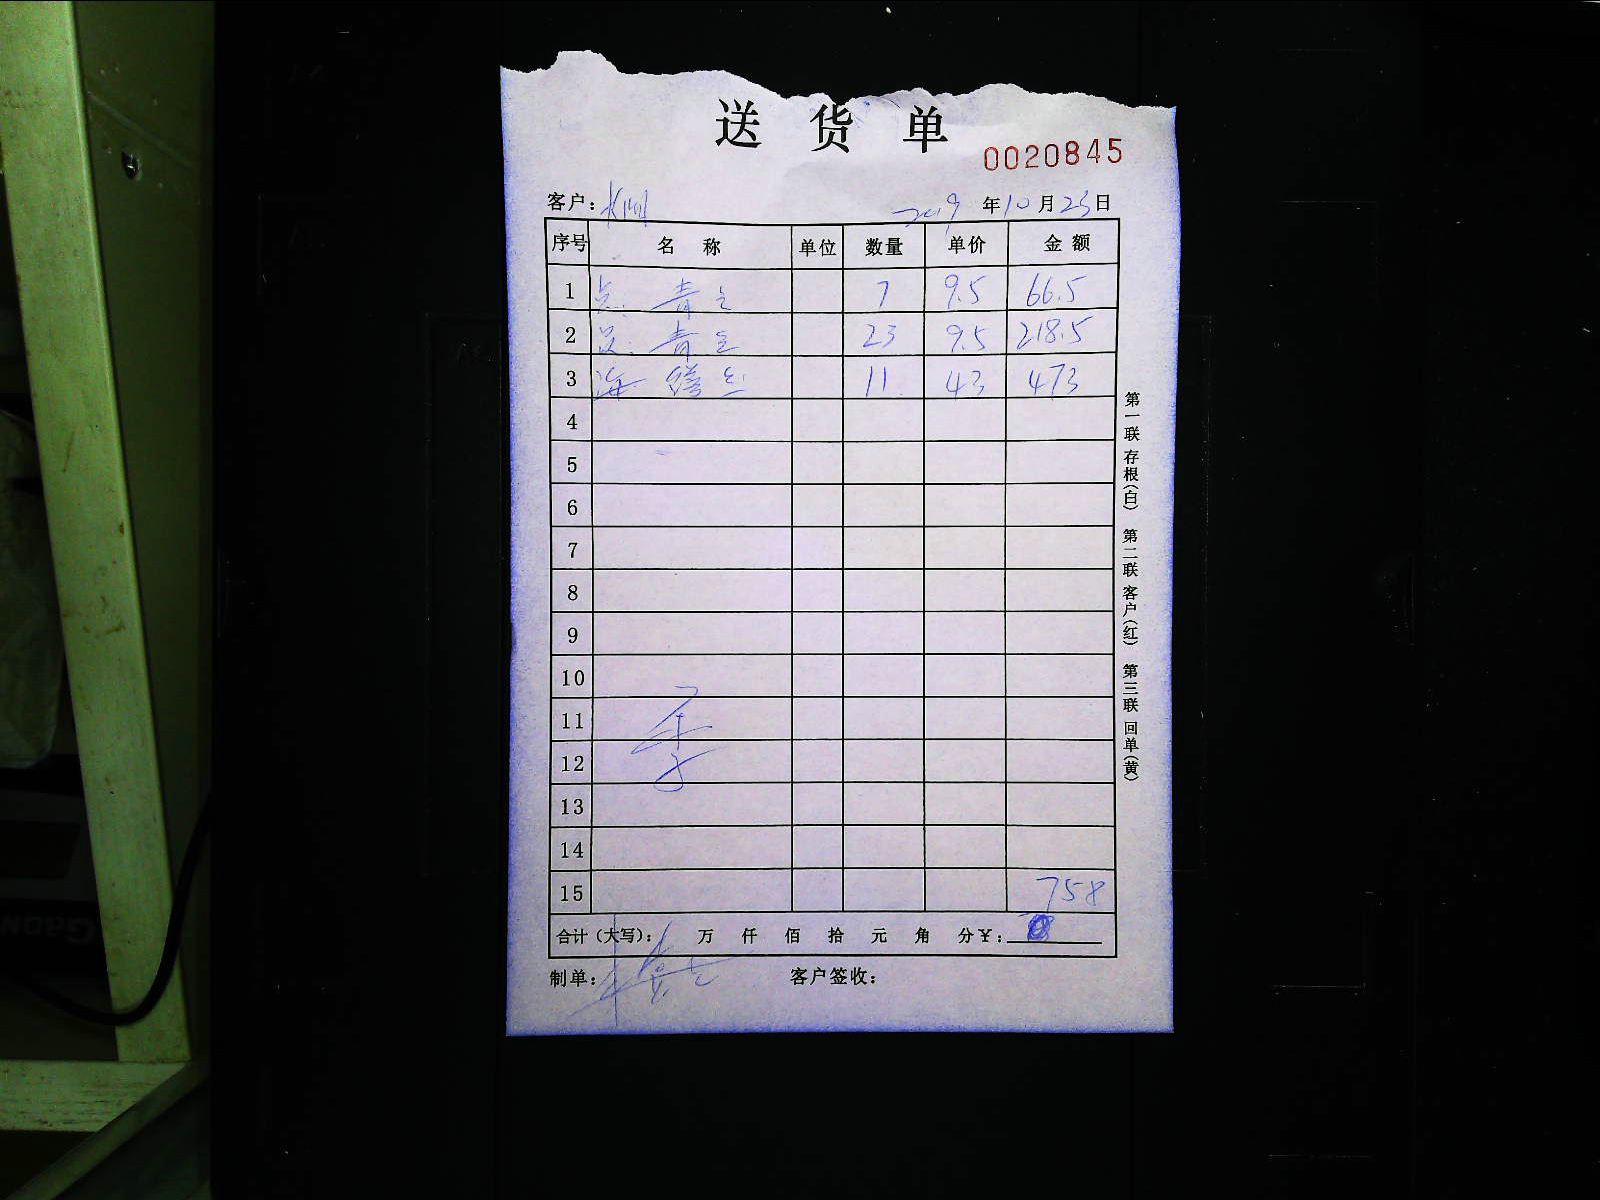 送 货 单
0020845
客户：
2019 年 10 月 23 日
序号 名 称 单位 数量 单价 金 额
1 青 7 9.5 66.5
2 青 23 9.5 218.5
3 海 11 43 473
4
5
6
7
8
9
10
11
12
13
14
15 758
合计（大写）： 万 仟 佰 拾 元 角 分 ¥：
制单：
客户签收：
第一联 存根（白） 第二联 客户（红） 第三联 回单（黄）